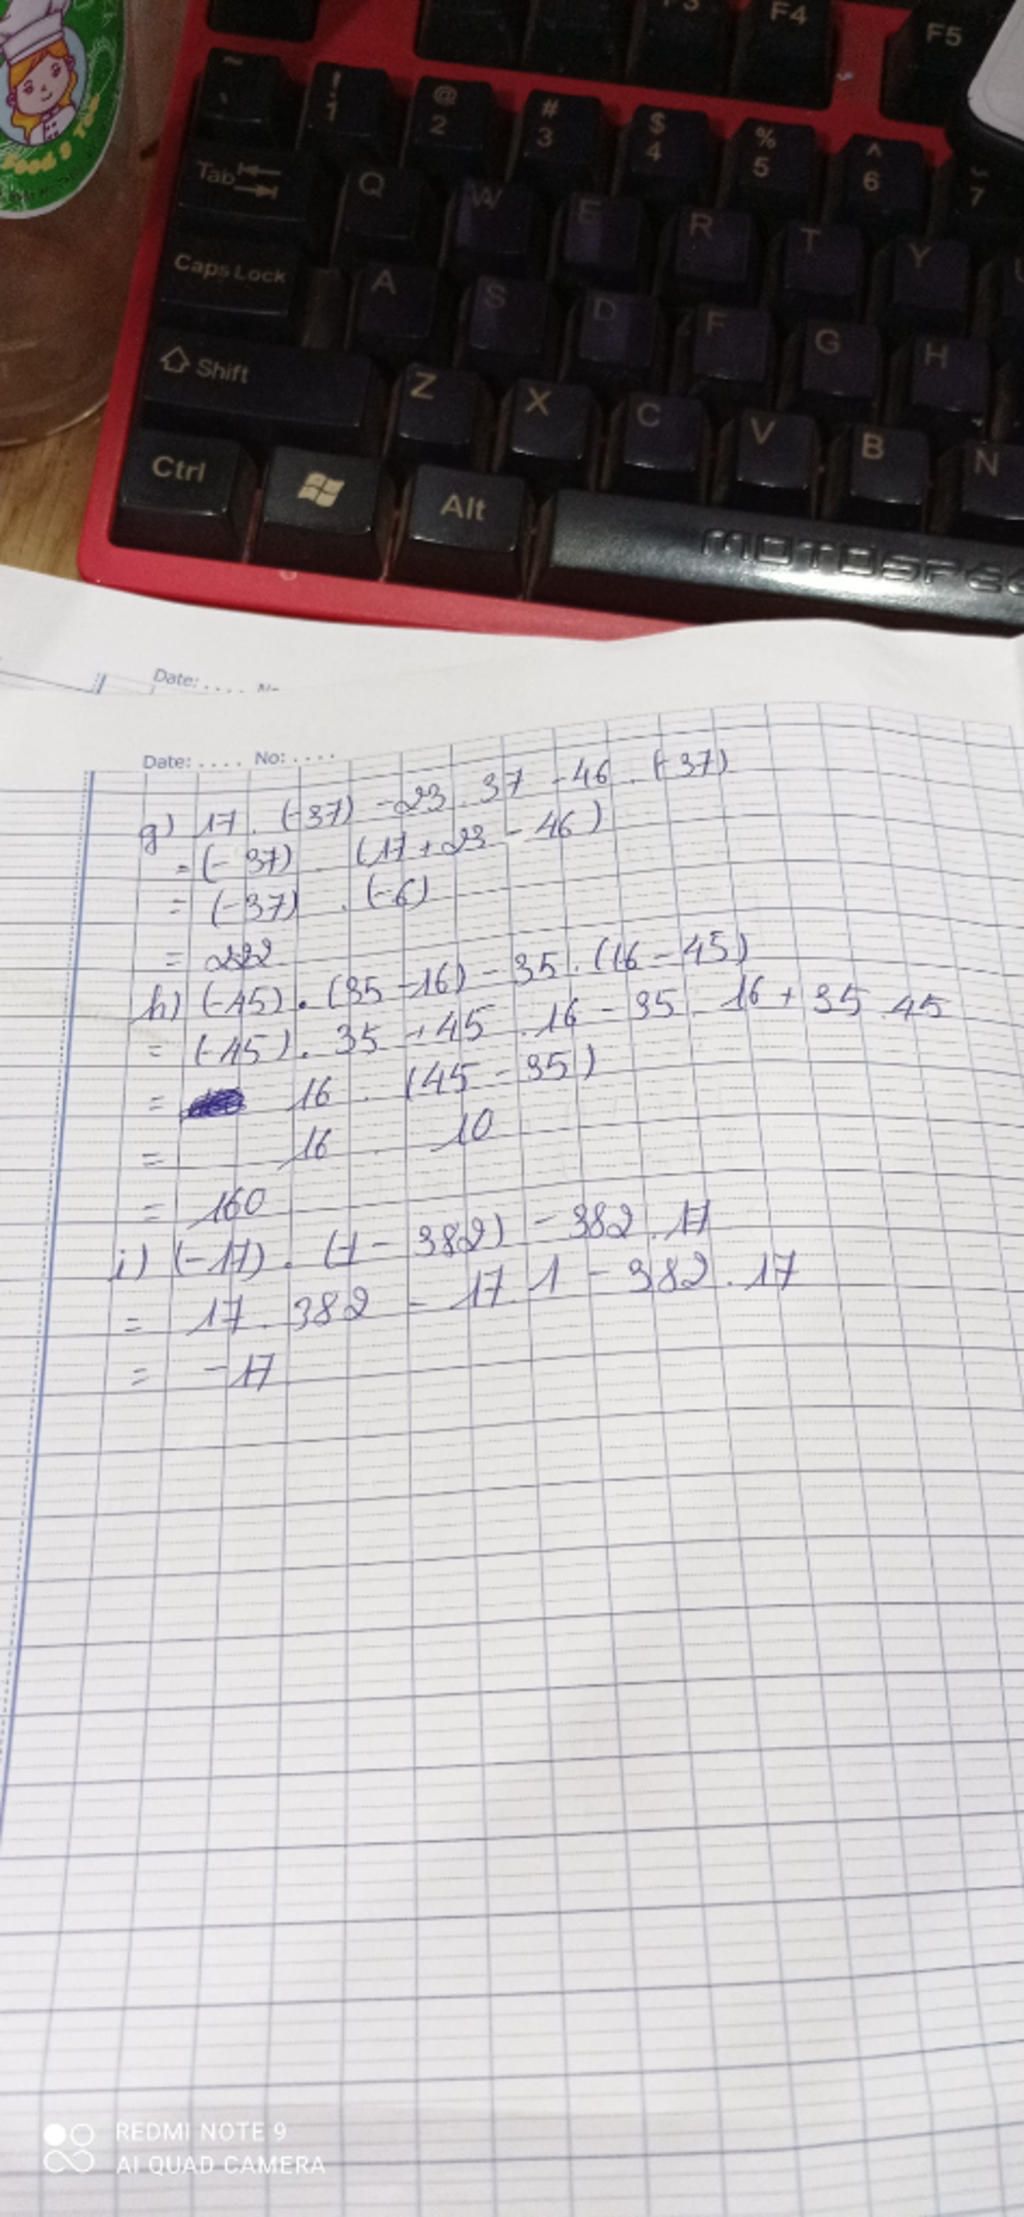 Food &
F3 F4 F5
~ ! @ # $ % ^
` 1 2 3 4 5 6 7
Tab Q W E R T Y
Caps Lock A S D F G H
Shift Z X C V B N
Ctrl Alt
MOTOSPE
Date: ....
Date: .... No: ....
g) 17 . (-37) - 23 . 37 - 46 . (-37)
= (-37) . (17 + 23 - 46)
= (-37) . (-6)
= 222
h) (-45) . (35 - 16) - 35 . (16 - 45)
= (-45) . 35 + 45 . 16 - 35 . 16 + 35 . 45
= 16 . (45 - 35)
= 16 . 10
= 160
i) (-17) . (1 - 382) - 382 . 17
= 17 . 382 - 17 . 1 - 382 . 17
= -17
REDMI NOTE 9
AI QUAD CAMERA